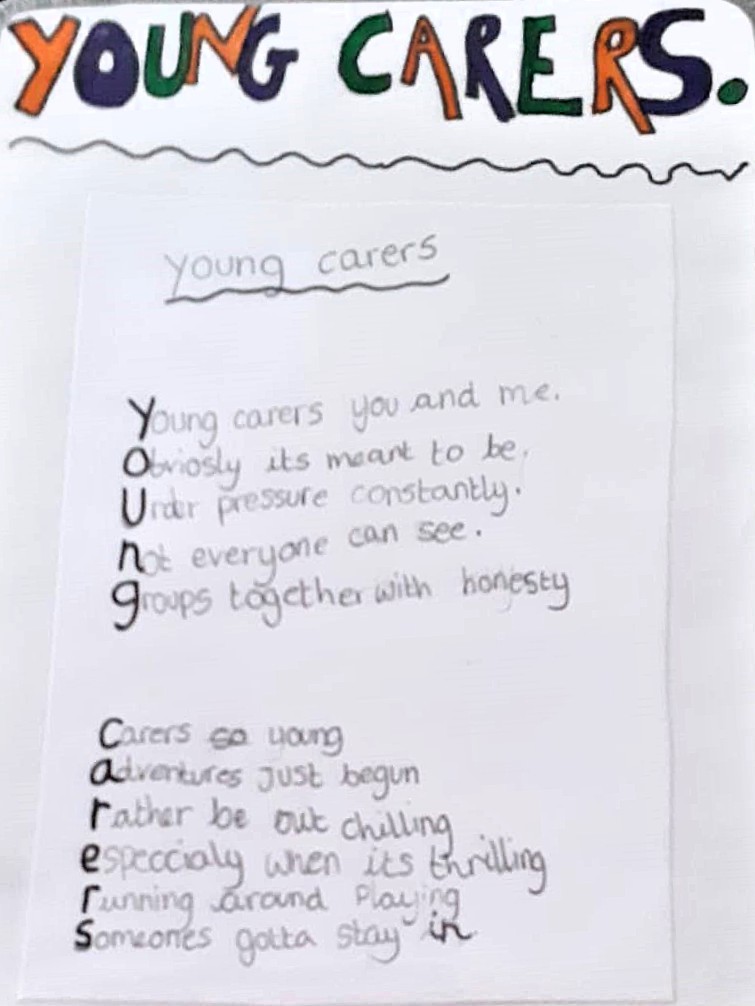 YOUNG CARERS.
young carers
Young carers you and me.
Obviosly its meant to be.
Under pressure constantly.
not everyone can see.
groups together with honesty
Carers so young
adventures just begun
rather be out chilling
especcialy when its thrilling
running around Playing
Someones gotta stay in